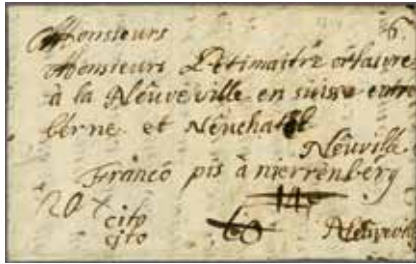 Monsieurs
Monsieurs Petimaitre orfaivre
à la Neûveville en suisse entre
berne et Neuchatel
Neûville
Franco pis à nierrenberg
20 x
cito
cito
60
Neûvevil